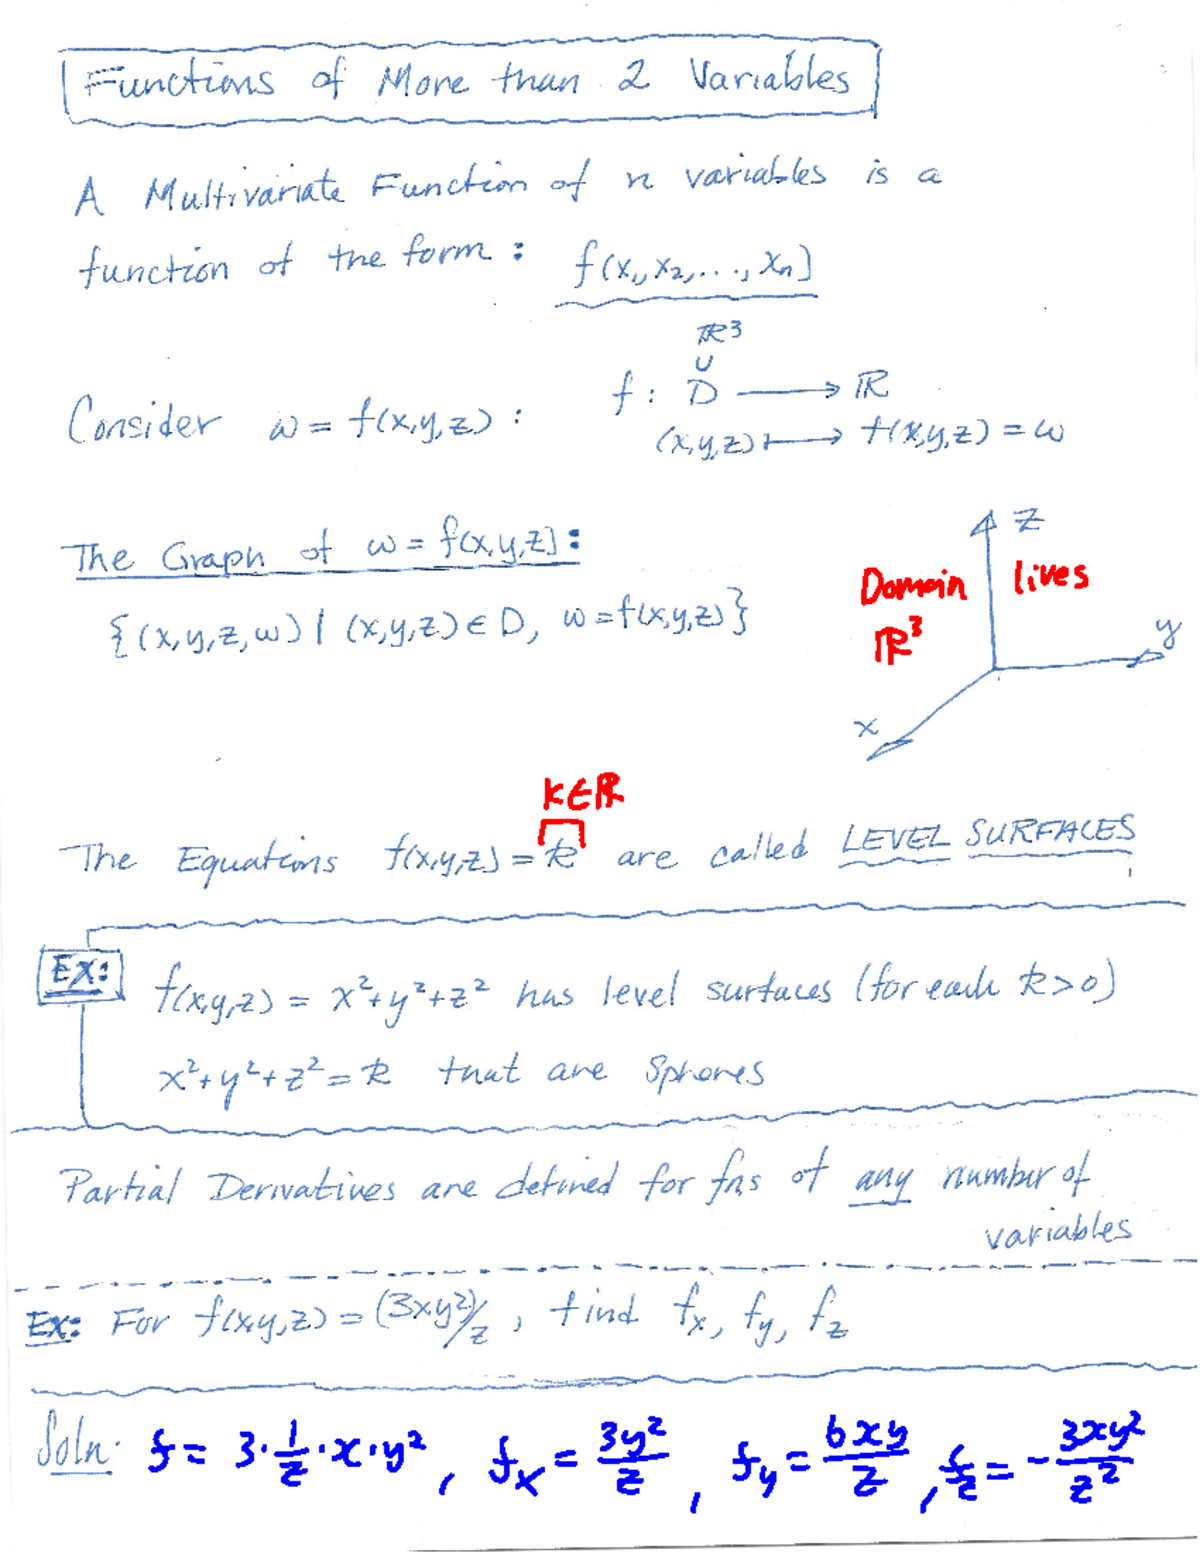 Functions of More than 2 Variables
A Multivariate Function of n variables is a
function of the form : f(x₁, x₂, ..., xₙ)
ℝ³
∪
f : D ⟶ ℝ
Consider w = f(x,y,z) :
(x,y,z) ⟼ f(x,y,z) = w
The Graph of w = f(x,y,z) :
{(x,y,z,w) | (x,y,z) ∈ D, w = f(x,y,z)}
z
Domain lives
ℝ³
y
x
k∈ℝ
The Equations f(x,y,z) = k are called LEVEL SURFACES
Ex:
f(x,y,z) = x²+y²+z² has level surfaces (for each k>0)
x²+y²+z² = k that are Spheres
Partial Derivatives are defined for fns of any number of
variables
Ex: For f(x,y,z) = (3xy²)/z , find fx, fy, fz
Soln: f = 3·1/z·x·y² , fx = 3y²/z , fy = 6xy/z , fz = -3xy²/z²